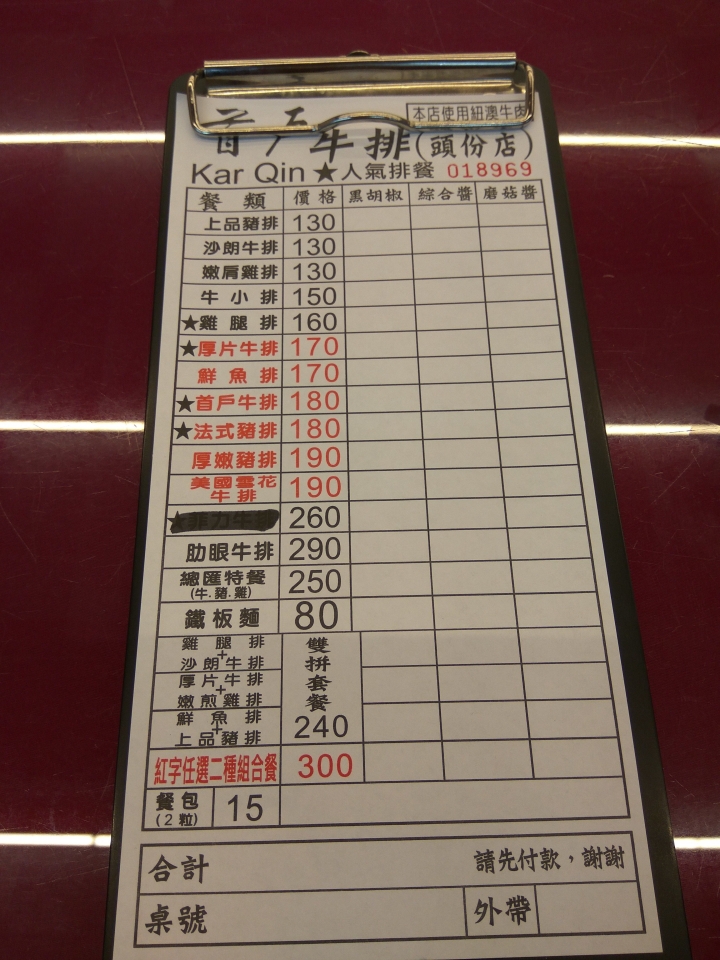 本店使用紐澳牛肉
首戶牛排(頭份店)
Kar Qin ★人氣排餐 018969
餐類 價格 黑胡椒 綜合醬 磨菇醬
上品豬排 130
沙朗牛排 130
嫩肩雞排 130
牛小排 150
★雞腿排 160
★厚片牛排 170
鮮魚排 170
★首戶牛排 180
★法式豬排 180
厚嫩豬排 190
美國雪花牛排 190
★菲力牛排 260
肋眼牛排 290
總匯特餐 250
(牛.豬.雞)
鐵板麵 80
雞腿排
+
沙朗牛排
厚片牛排
+
嫩煎雞排
鮮魚排
+
上品豬排
雙拼套餐 240
紅字任選二種組合餐 300
餐包 15
(2粒)
合計 請先付款，謝謝
桌號 外帶